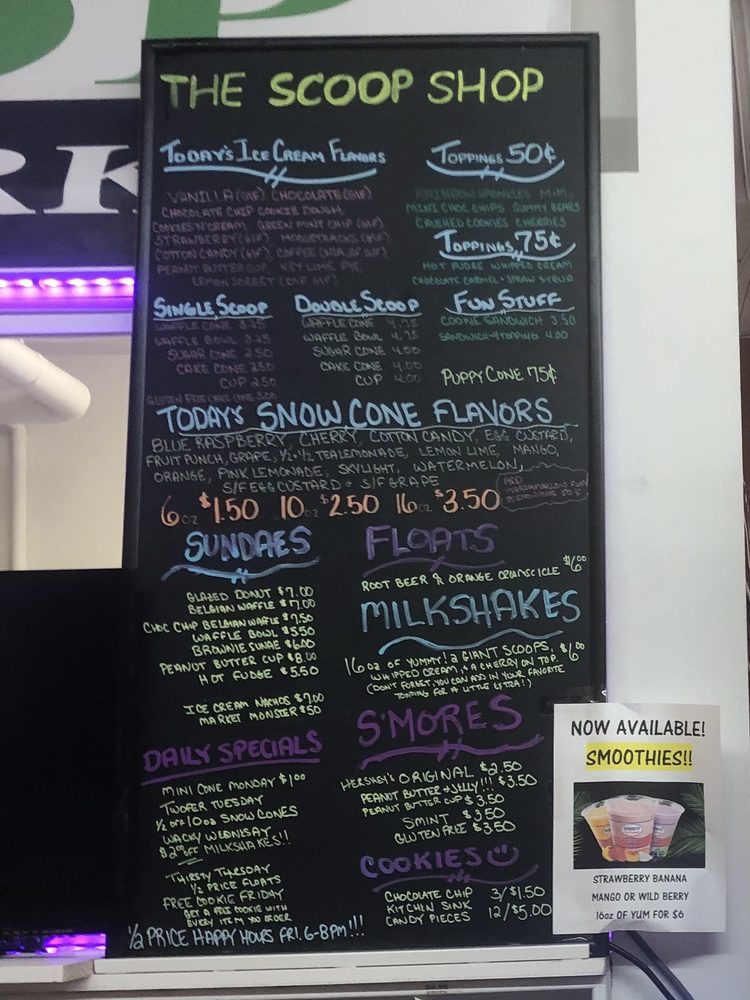 THE SCOOP SHOP
TODAY'S ICE CREAM FLAVORS
VANILLA (GF), CHOCOLATE (GF)
CHOCOLATE CHIP COOKIE DOUGH,
COOKIES N CREAM, GREEN MINT CHIP (GF)
STRAWBERRY (GF), MOOSETRACKS (GF)
COTTON CANDY (GF), COFFEE
PEANUT BUTTER CUP, KEY LIME PIE,
LEMON SORBET
TOPPINGS 50¢
RAINBOW SPRINKLES M+MS
MINI CHOC CHIPS GUMMY BEARS
CRUSHED COOKIES CHERRIES
TOPPINGS 75¢
HOT FUDGE WHIPPED CREAM
CHOCOLATE CARMEL + STRAW SYRUP
SINGLE SCOOP
WAFFLE CONE 3.25
WAFFLE BOWL 3.25
SUGAR CONE 2.50
CAKE CONE 2.50
CUP 2.50
GLUTEN FREE CAKE CONE 3.00
DOUBLE SCOOP
WAFFLE CONE 4.75
WAFFLE BOWL 4.75
SUGAR CONE 4.00
CAKE CONE 4.00
CUP 4.00
FUN STUFF
COOKIE SANDWICH 3.50
SANDWICH + TOPPING 4.00
PUPPY CONE 75¢
TODAY'S SNOW CONE FLAVORS
BLUE RASPBERRY, CHERRY, COTTON CANDY, EGG CUSTARD,
FRUIT PUNCH, GRAPE, ½ + ½ TEA LEMONADE, LEMON LIME, MANGO,
ORANGE, PINK LEMONADE, SKYLIGHT, WATERMELON,
S/F EGG CUSTARD + S/F GRAPE
6 oz $1.50 10 oz $2.50 16 oz $3.50
ADD
MARSHMALLOW
SUNDAES
GLAZED DONUT $7.00
BELGIAN WAFFLE $7.00
CHOC CHIP BELGIAN WAFFLE $7.50
WAFFLE BOWL $5.50
BROWNIE SUNAE $6.00
PEANUT BUTTER CUP $8.00
HOT FUDGE $5.50
ICE CREAM NACHOS $7.00
MARKET MONSTER $50
FLOATS
ROOT BEER & ORANGE CREAMSCICLE $6.00
MILKSHAKES
16 oz OF YUMMY! 2 GIANT SCOOPS, $6.00
WHIPPED CREAM, + A CHERRY ON TOP.
(DON'T FORGET, YOU CAN ADD IN YOUR FAVORITE
TOPPING FOR A LITTLE EXTRA!)
DAILY SPECIALS
MINI CONE MONDAY $1.00
TWOFER TUESDAY
½ OFF 10oz SNOW CONES
WACKY WEDNESDAY
$2.00 OFF MILKSHAKES!!
THIRSTY THURSDAY
½ PRICE FLOATS
FREE COOKIE FRIDAY
GET A FREE COOKIE WITH
EVERY ITEM YOU ORDER
½ PRICE HAPPY HOURS FRI. 6-8PM!!!
S'MORES
HERSHEY'S ORIGINAL $2.50
PEANUT BUTTER + JELLY!!! $3.50
PEANUT BUTTER CUP $3.50
SMINT $3.50
GLUTEN FREE $3.50
COOKIES
CHOCOLATE CHIP 3/$1.50
KITCHIN SINK 12/$5.00
CANDY PIECES
NOW AVAILABLE!
SMOOTHIES!!
STRAWBERRY BANANA
MANGO OR WILD BERRY
16oz OF YUM FOR $6